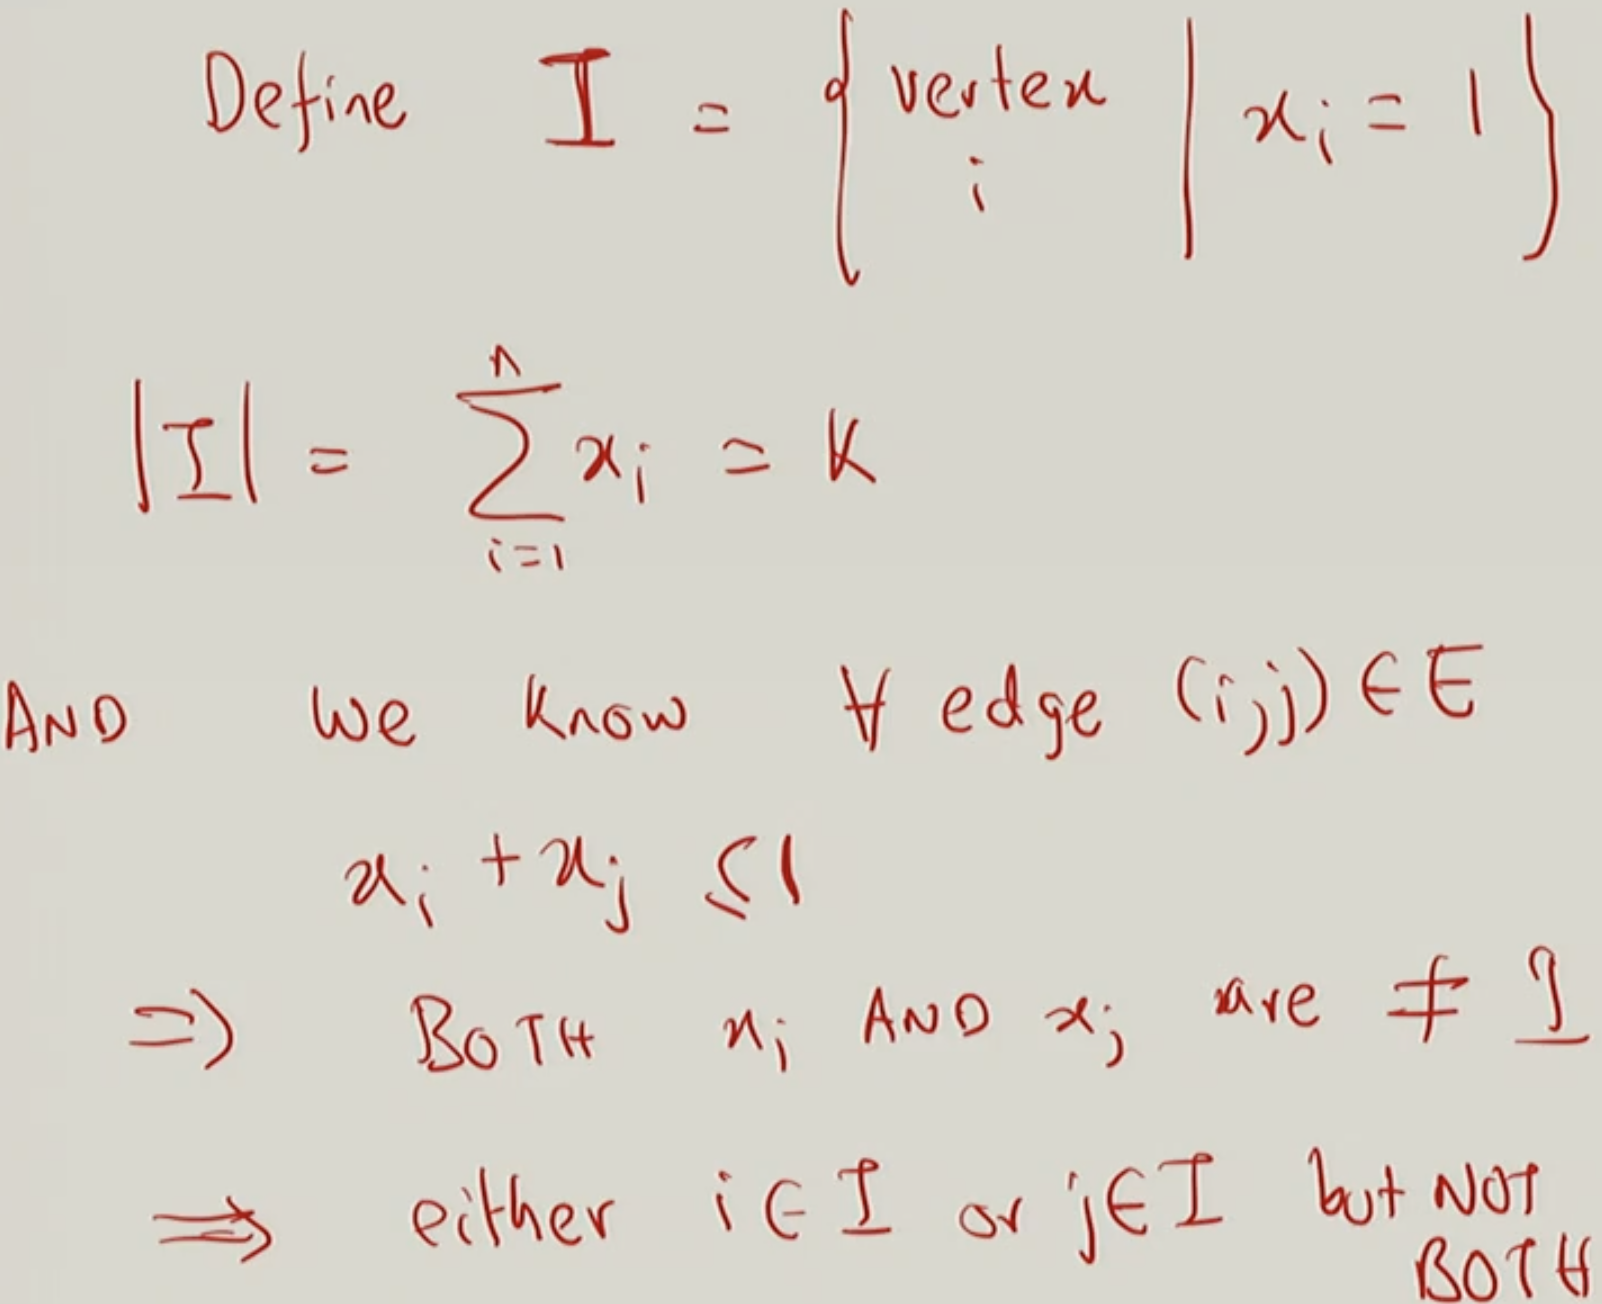 Define I = { vertex i | xᵢ = 1 }
|I| = ∑ᵢ₌₁ⁿ xᵢ = K
AND we know ∀ edge (i,j) ∈ E
xᵢ + xⱼ ≤ 1
⇒ BOTH xᵢ AND xⱼ are ≠ 1
⇒ either i ∈ I or j ∈ I but NOT
BOTH